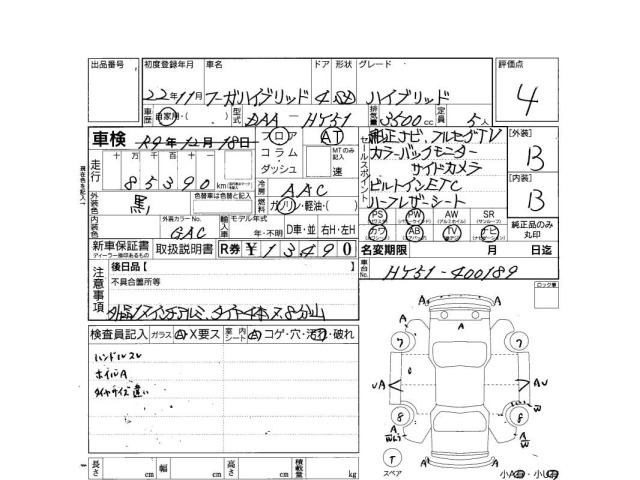 出品番号 初度登録年月 車名 ドア 形状 グレード 評価点
22年11月 フーガハイブリッド 4 ハイブリッド 4
車歴 自家用・( ) 型式 DAA - HY51 排気量 3500cc 定員 5人
車検 R9年12月18日 フロア AT
コラム
ダッシュ
MTのみ記入
速
セールスポイント
純正ナビ、フルセグTV
カラーバックモニター
サイドカメラ
ビルトインETC
ハーフレザーシート
[外装]
B
[内装]
B
走行 十万 千 百 十
85390 km
冷房 AAC
外装色 黒 色替車は色替と記入
燃料 ガソリン・軽油・( )
PS PW AW SR
カワ AB TV ナビ
純正品のみ丸印
内装色 外装カラーNo. GAC
輸入車 モデル年式 年・不明 D車・並 右H・左H
新車保証書 取扱説明書 R券 ¥13490
ディーラー捺印あるもの
名変期限 月 日迄
車台No. HY51-400189
注意事項 後日品【 】
不具合箇所等
ロック車
検査員記入 ガラス A X要ス 室内シート A コゲ・穴・汚れ・破れ
ハンドルスレ
ホイルA
タイヤサイズ違い
長さ cm 幅 cm 高さ cm 積載量 kg
7 7
8 8
T
スペア